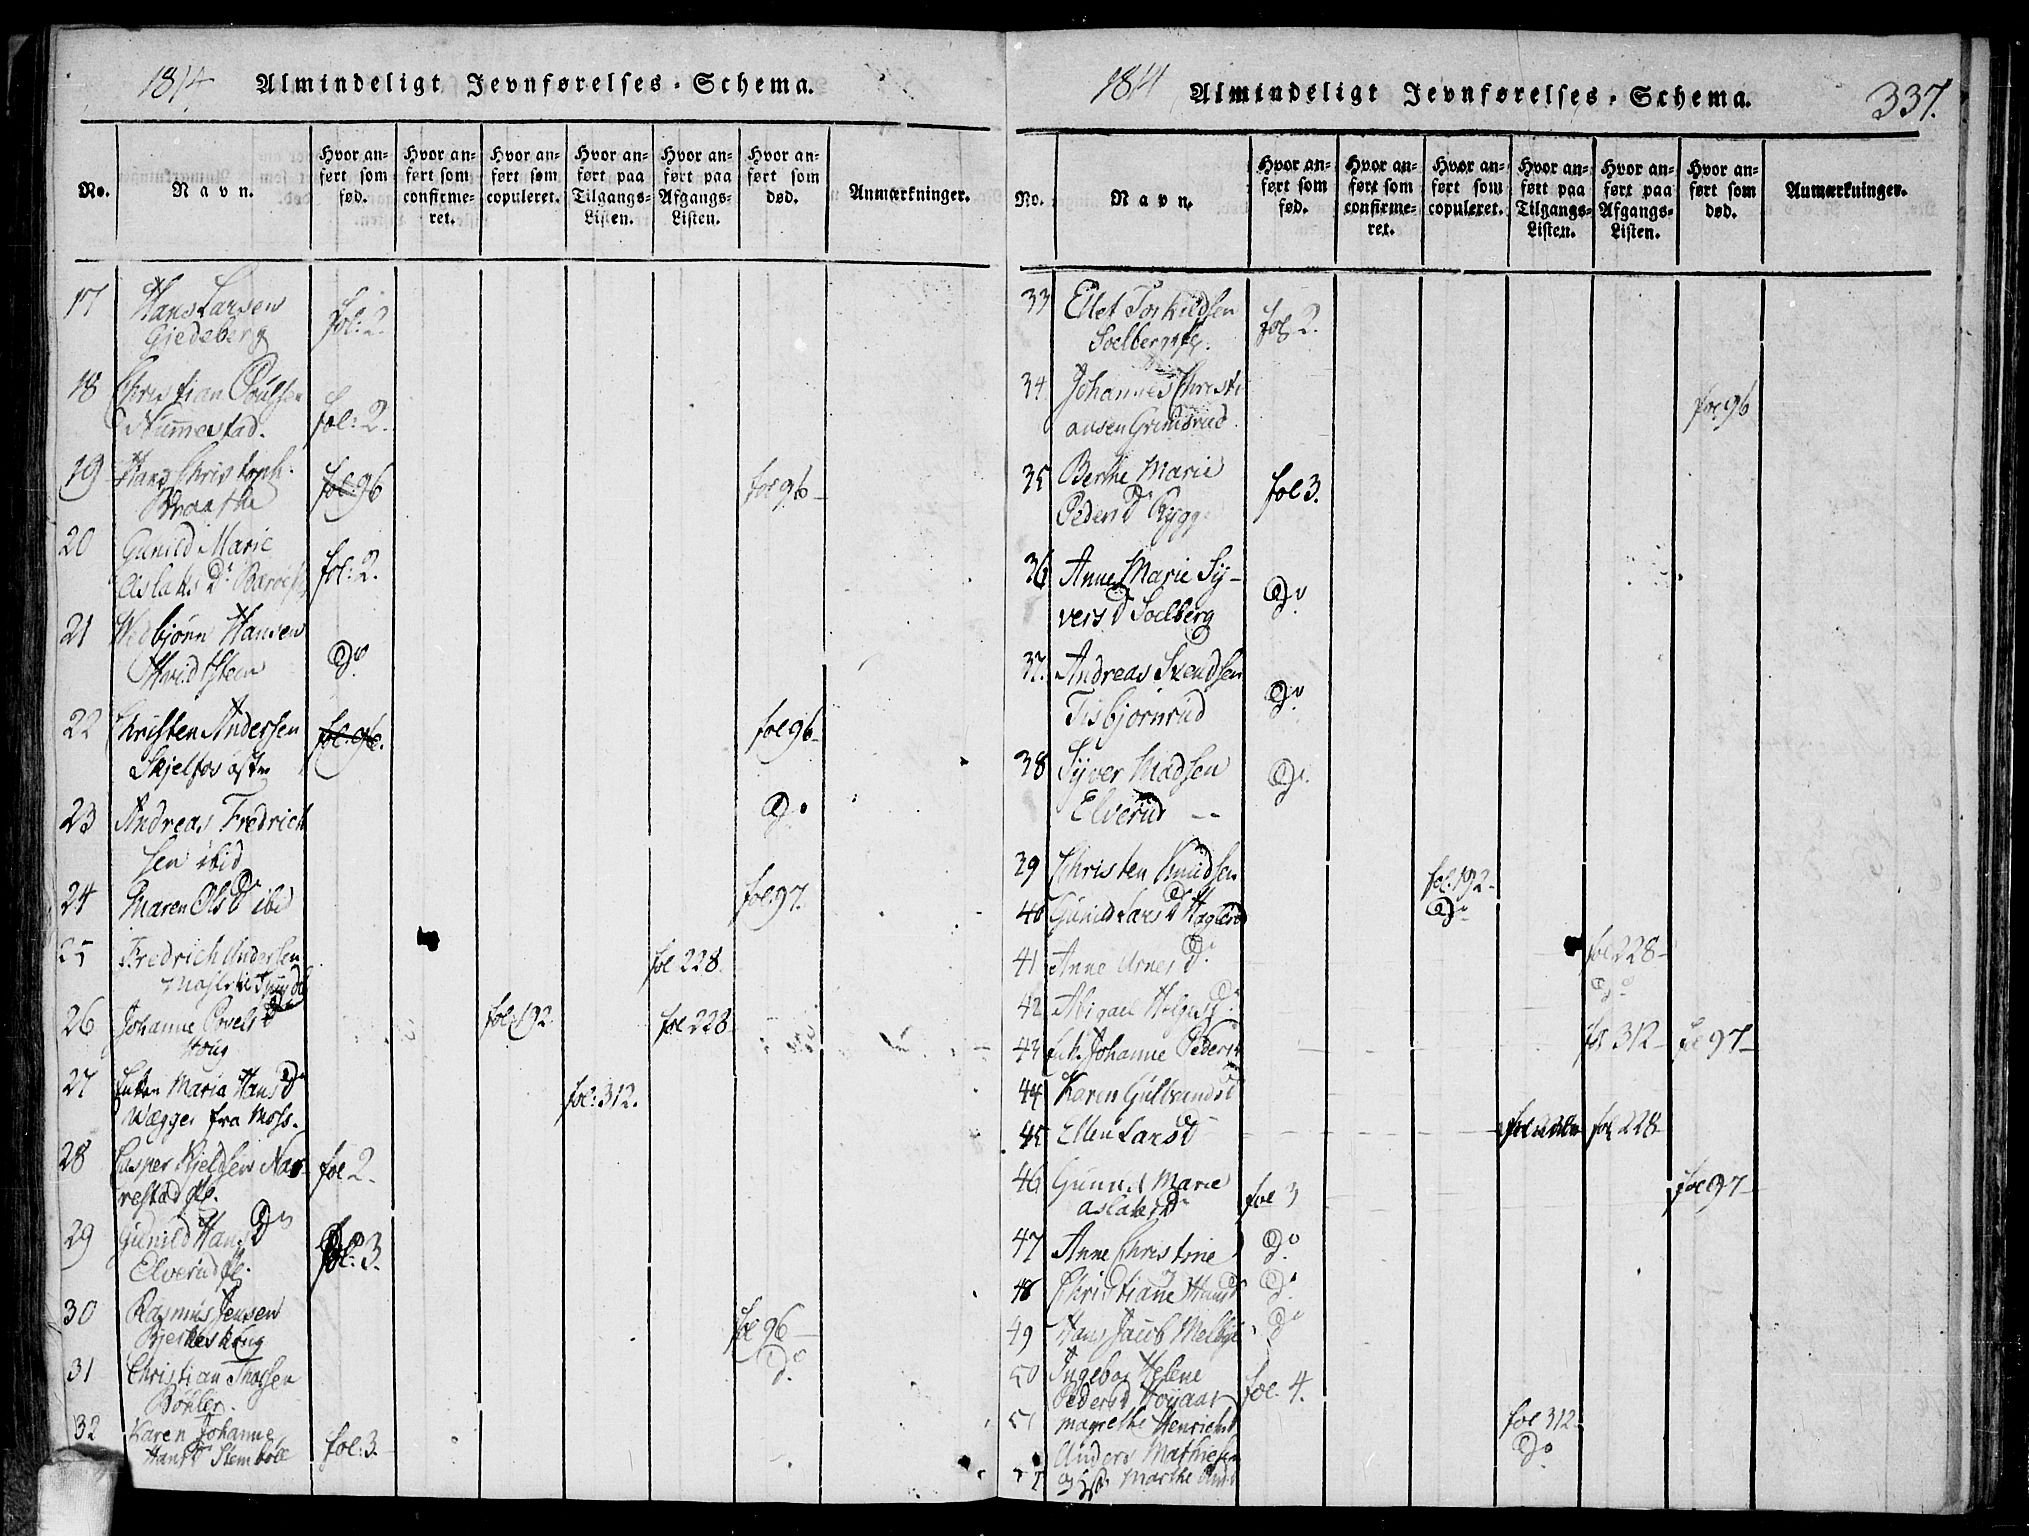 1814 Almindeligt Jevnførelses-Schema.
No. Navn. Hvor anført som fød. Hvor anført som confirmeret. Hvor anført som copuleret. Hvor anført paa Tilgangs-Listen. Hvor anført paa Afgangs-Listen. Hvor anført som død. Anmærkninger.
17 Hans Larsen
Giedsberg fol: 2.
18 Christian Poulsen
Nummestad. fol: 2.
19 Hans Christoph.
Braathe fol: 96 fol 96
20 Gunild Marie
Aslaks D. fol: 2.
21 Vedbjönn Hansen
Hvidsteen Do
22 Christen Andersen
Skjelfos östre fol: 96. fol 96
23 Andreas Fredrich
sen ibid Do
24 Maren Ols D ibid fol 97.
25 Fredrich Andersen
fol 228.
26 Johanne Povels D
Houg fol: 192. fol 228
27 Enken Maria Hans D
Wægger fra Moss. fol: 312.
28 Casper Kjeldsen Nar
restad fol 2.
29 Gunild Hans D
Elverud fol: 3.
30 Rasmus Jensen
Bjerkeskoug fol 96
31 Christian Thossen
Böhler. Do
32 Karen Johanne
Hans D Stemböle fol: 3.
1814 Almindeligt Jevnførelses-Schema. 337.
No. Navn. Hvor anført som fød. Hvor anført som confirmeret. Hvor anført som copuleret. Hvor anført paa Tilgangs-Listen. Hvor anført paa Afgangs-Listen. Hvor anført som død. Anmærkninger.
33 Ellet Torkildsen
Soelberg fol 2.
34 Johannes Christi
ansen Grimsrud fol 96
35 Berthe Marie
Peders D Rygge fol 3.
36 Anne Marie Sy-
vers D Soelberg Do
37. Andreas Svendsen
Fisbjornrud Do
38 Syver Madsen
Elverud Do
39 Christen Knudsen fol: 192.
40 Gunild Lars D Do
41 Anne Arnes D. fol 228
42 Abigael Helges D. Do
43 Johanne Peders fol 312 fol 97
44 Karen Gulbrands D
45 Ellen Lars D fol 228
46 Gunild Marie fol 97
Aslaks D fol 3
47 Anne Christine Do
48 Christiane Hans D Do
49 Hans Jacob Melbye Do
50 Ingebor Helene
Peders D fol. 4.
51 Magrethe Henrichs D fol 312.
Anders Mathiesen Do
og Marthe